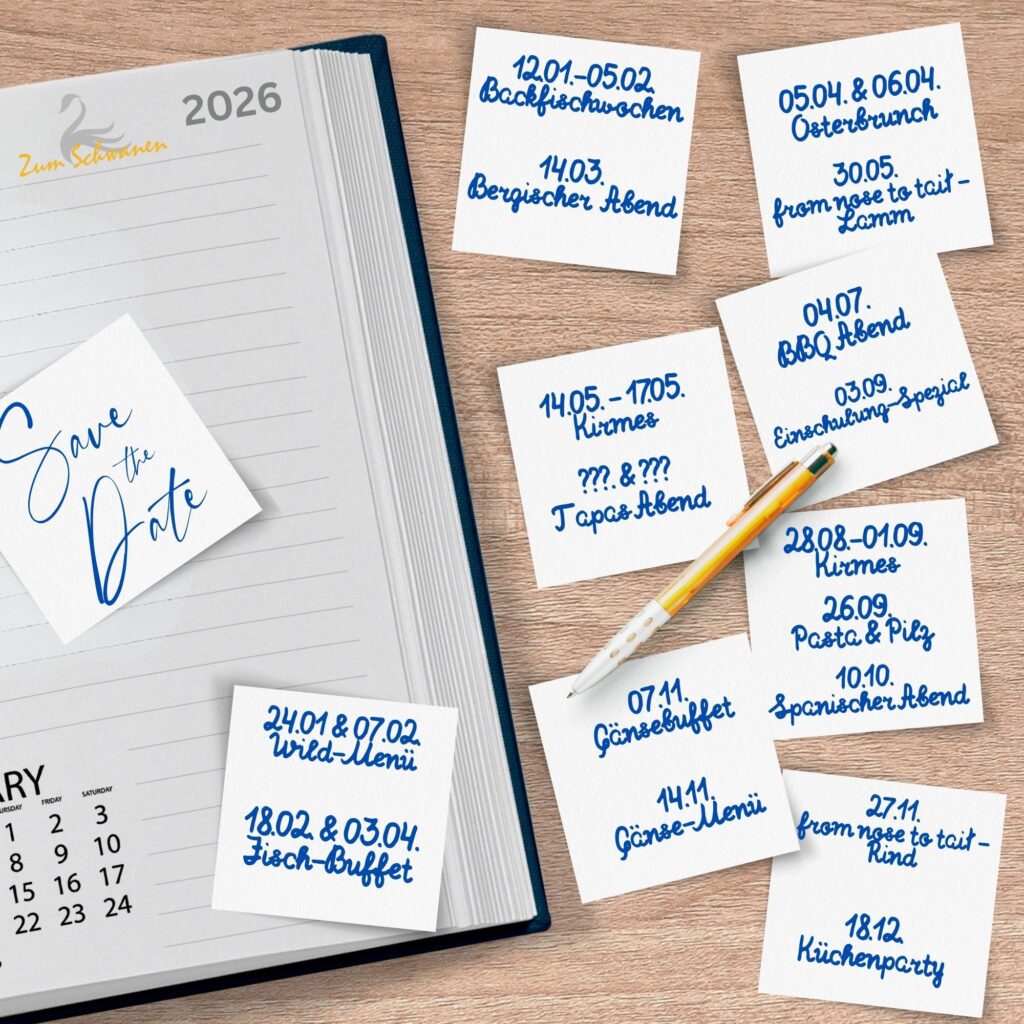 Zum Schwanen
2026
Save
the
Date
ARY
URSDAY FRIDAY SATURDAY
1 2 3
8 9 10
15 16 17
22 23 24
24.01 & 07.02.
Wild-Menü
18.02. & 03.04.
Fisch-Buffet
12.01.-05.02.
Backfischwochen
14.03.
Bergischer Abend
05.04. & 06.04.
Osterbrunch
30.05.
from nose to tail -
Lamm
04.07.
BBQ Abend
03.09.
Einschulung-Spezial
14.05. - 17.05.
Kirmes
???. & ???
Tapas Abend
28.08.-01.09.
Kirmes
26.09.
Pasta & Pilz
10.10.
Spanischer Abend
07.11.
Gänsebuffet
14.11.
Gänse-Menü
27.11.
from nose to tail -
Rind
18.12.
Küchenparty